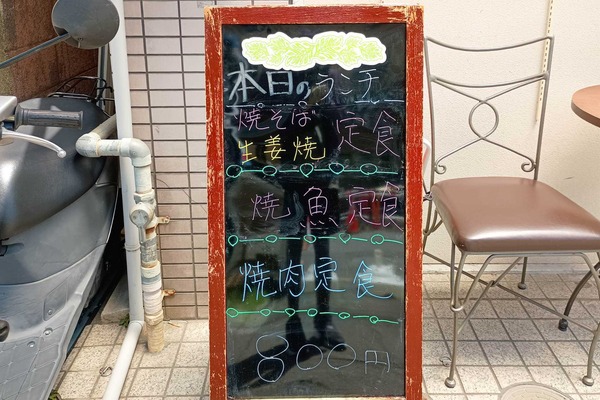 本日のランチ
焼そば
生姜焼
定食
焼魚定食
焼肉定食
800円